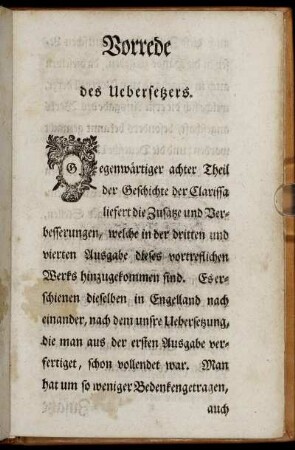 Vorrede
des Uebersetzers.
Gegenwärtiger achter Theil
der Geschichte der Clarissa
liefert die Zusätze und Ver-
besserungen, welche in der dritten und
vierten Ausgabe dieses vortreflichen
Werks hinzugekommen sind. Es er-
schienen dieselben in Engelland nach
einander, nach dem unsre Uebersetzung,
die man aus der ersten Ausgabe ver-
fertiget, schon vollendet war. Man
hat um so weniger Bedenken getragen,
auch